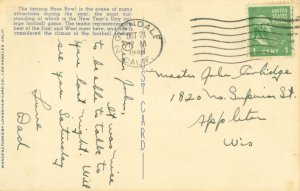 The famous Rose Bowl is the scene of many
attractions during the year, the most out-
standing of which is the New Year's Day col-
lege football game. The teams representing the
best of the East and West meet here, and
considered the climax of the football
MANUFACTURED BY LONGSHAW CARD CO., LOS ANGELES, CALIF.
POST CARD
CALIF.
1 CENT
Dear John,
It was nice
to be able to talk to
you last night. Will
see you Saturday
Love
Dad
Master John
1820 No. Superior St.
Appleton
Wis